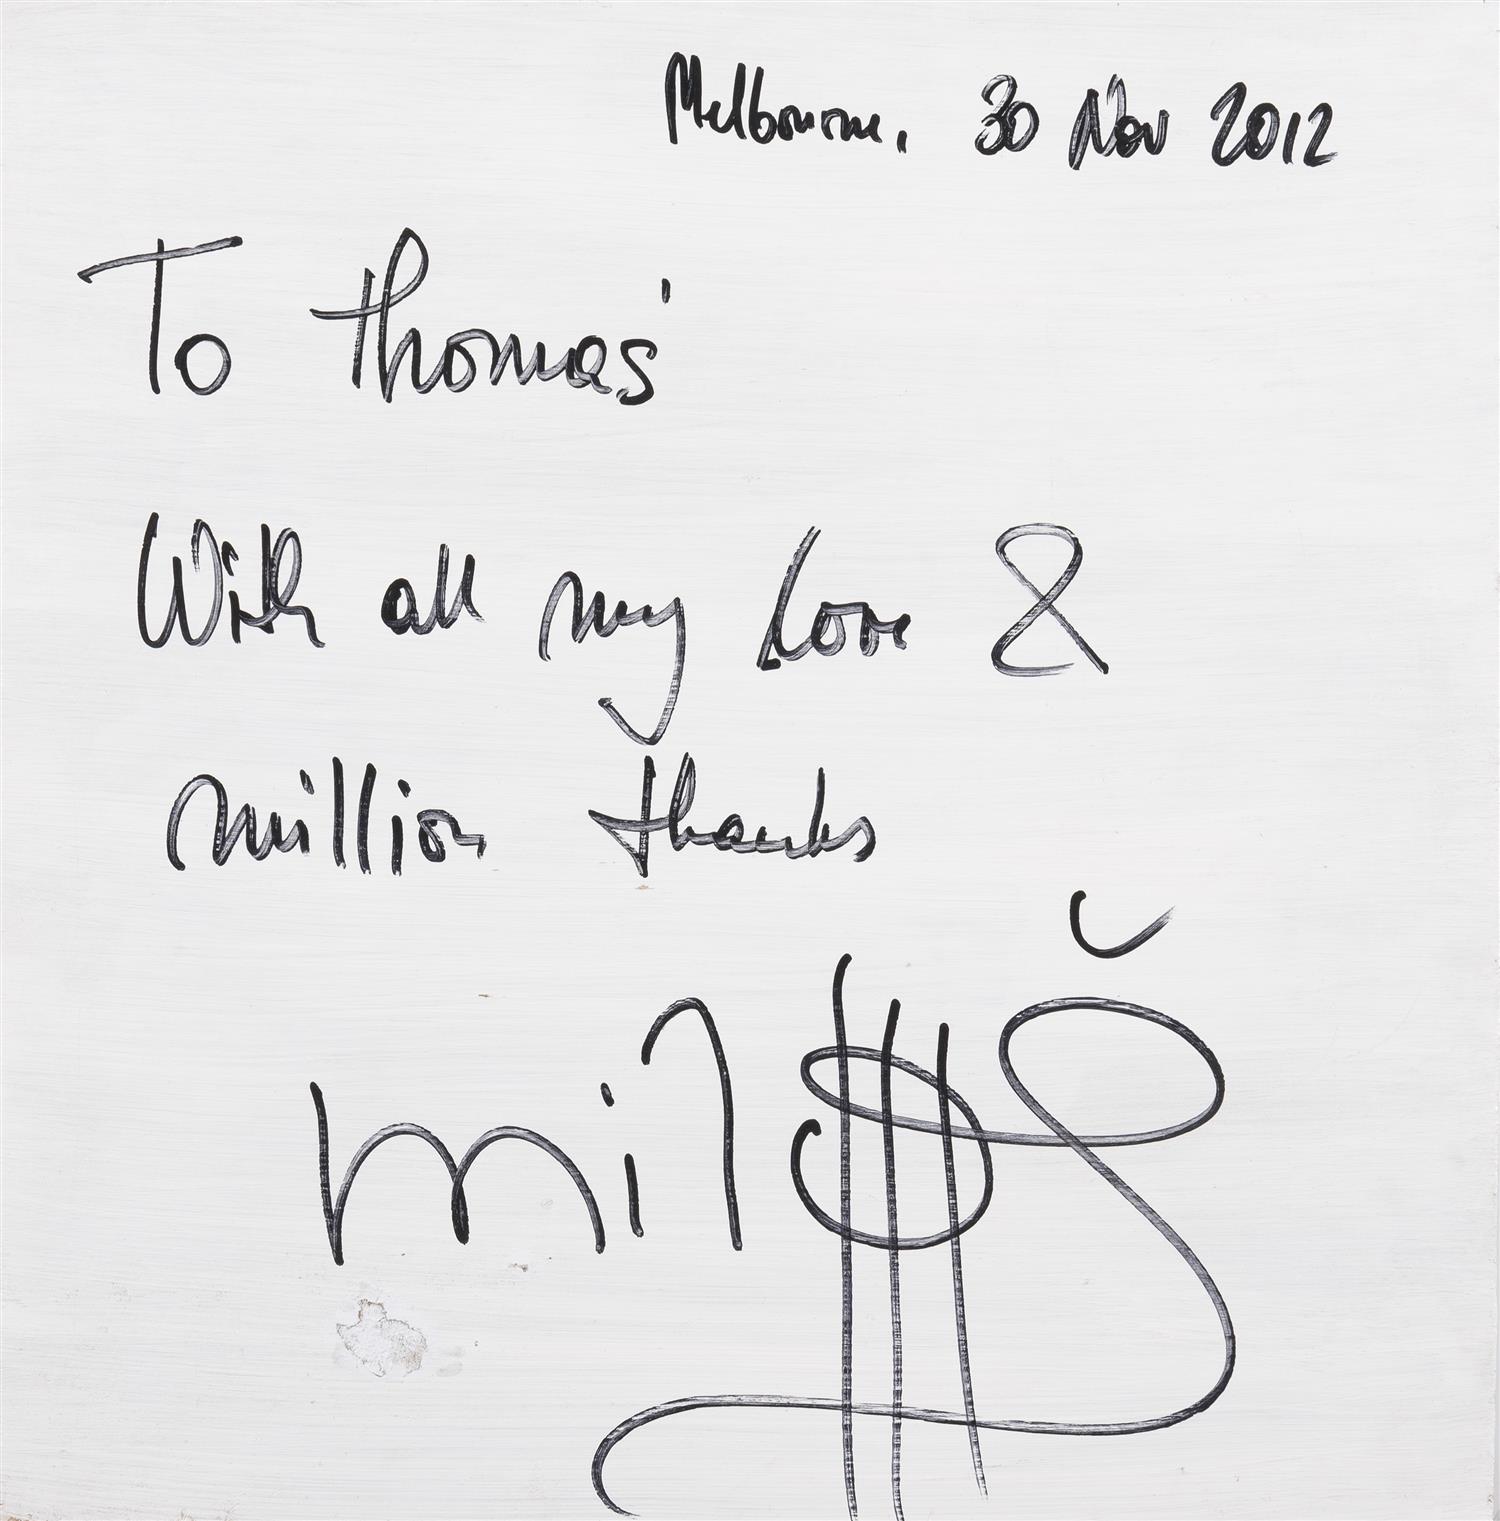 Melbourne, 30 Nov 2012
To Thomas'
With all my Love &
million thanks